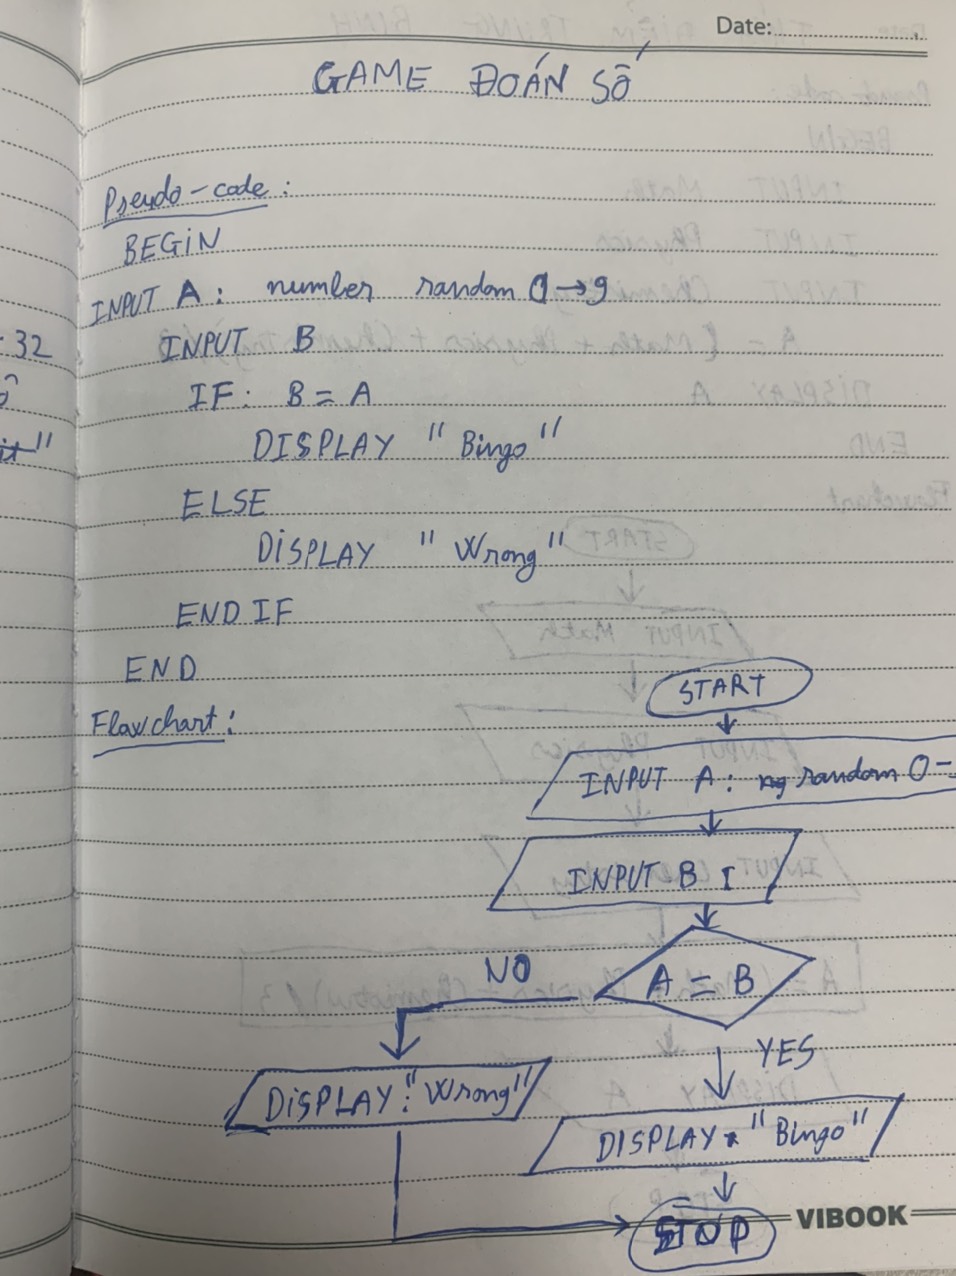 Date:
GAME ĐOÁN SỐ
Pseudo-code:
BEGIN
INPUT A: number random 0→9
: 32
INPUT B
IF: B = A
it"
DISPLAY "Bingo"
ELSE
DISPLAY "Wrong"
END IF
END
START
Flowchart:
INPUT A: random 0-
INPUT B
A = B
NO
YES
DISPLAY: "Wrong"
DISPLAY "Bingo"
STOP
VIBOOK